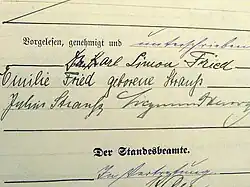 Vorgelesen, genehmigt und unterschrieben
Karl Simon Fried
Emilie Fried geborene Strauß
Julius Strauß,
Der Standesbeamte.
In Vertretung